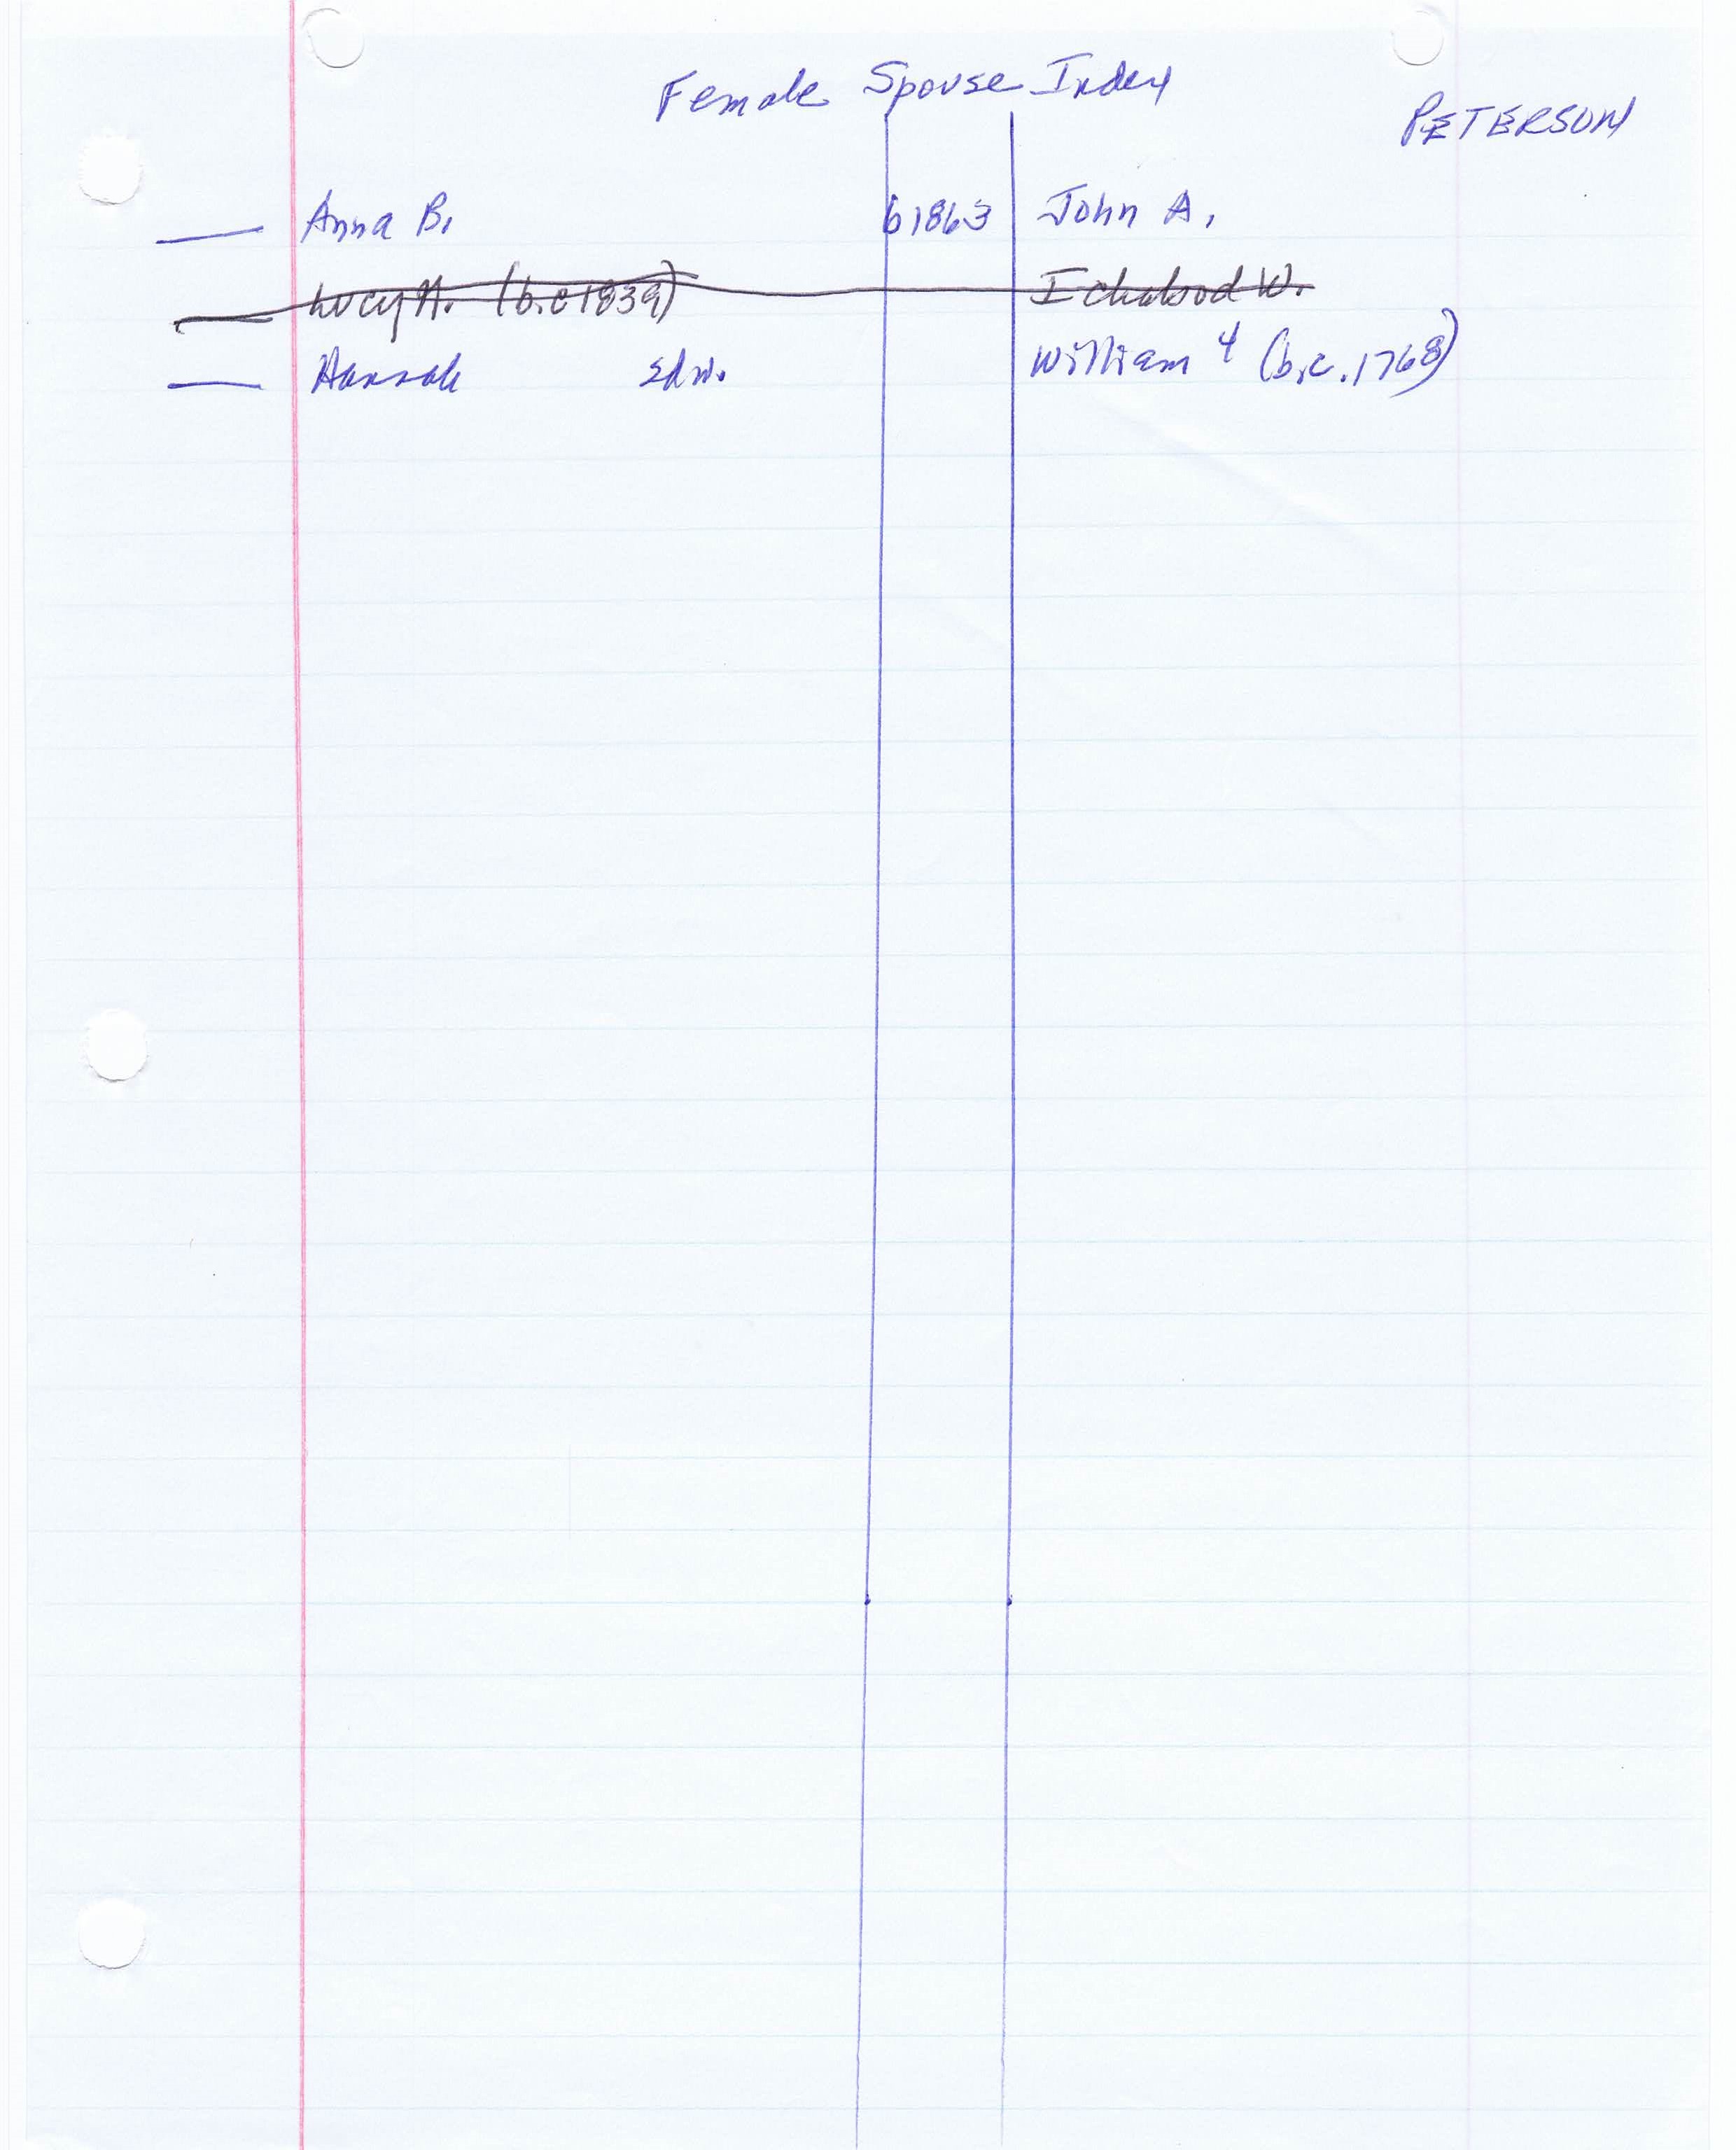 Female Spouse Index
PETERSON
— Anna B. b1863 John A.
— Lucy A. (b.c1839) Ichabod W.
— Hannah William 4 (b.c.1768)